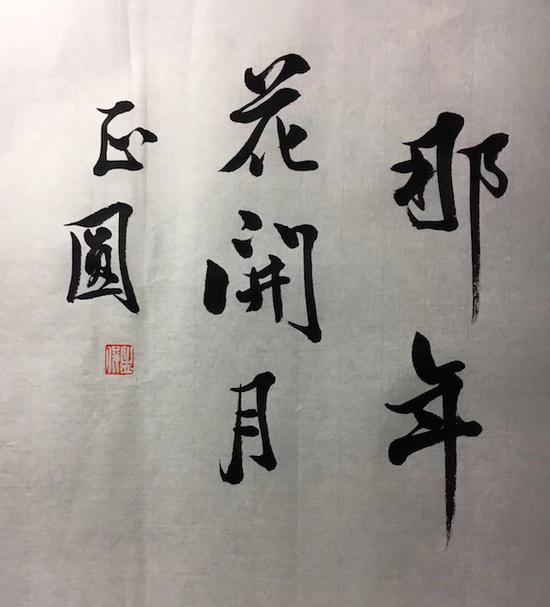 那年
花開月
正圓